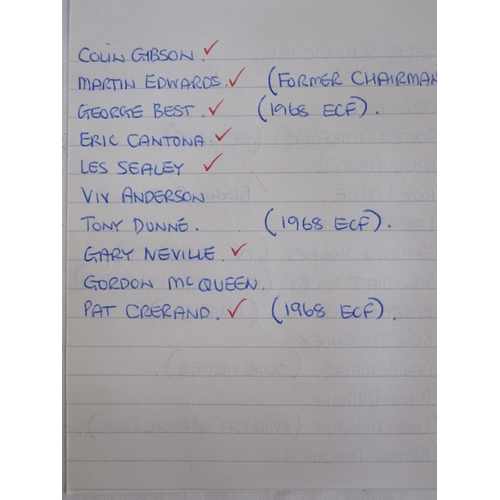 COLIN GIBSON. ✓
MARTIN EDWARDS. ✓ (FORMER CHAIRMAN
GEORGE BEST. ✓ (1968 ECF).
ERIC CANTONA ✓
LES SEALEY ✓
VIV ANDERSON
TONY DUNNE. (1968 ECF).
GARY NEVILLE. ✓
GORDON McQUEEN.
PAT CRERAND. ✓ (1968 ECF).